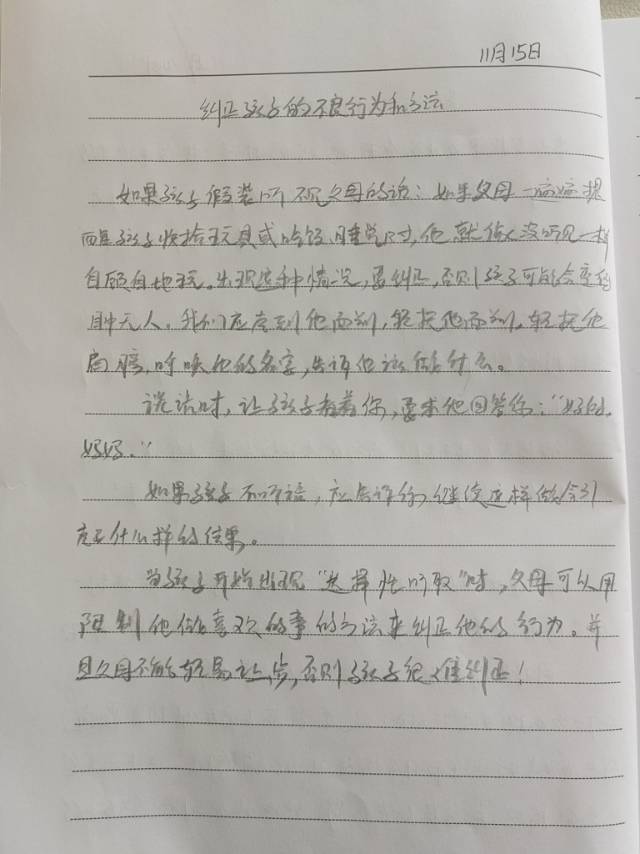 11月15日
纠正孩子的不良行为和方法
如果孩子假装听不见父母的话：如果父母一遍遍提
醒孩子收拾玩具或吃饭睡觉时，他就像没听见一样
自顾自地玩。出现这种情况，要纠正，否则孩子可能会变得
目中无人。我们应走到他面前，轻扶他面前，轻扶他
肩膀，呼唤他的名字，告诉他该做什么。
说话时，让孩子看着你，要求他回答你："好的，
妈妈。"
如果孩子不听话，应告诉你，继续这样做会引
起什么样的结果。
当孩子开始出现"选择性听取"时，父母可以用
限制他做喜欢的事的方法来纠正他的行为。并
且父母不能轻易让步，否则孩子很难纠正！